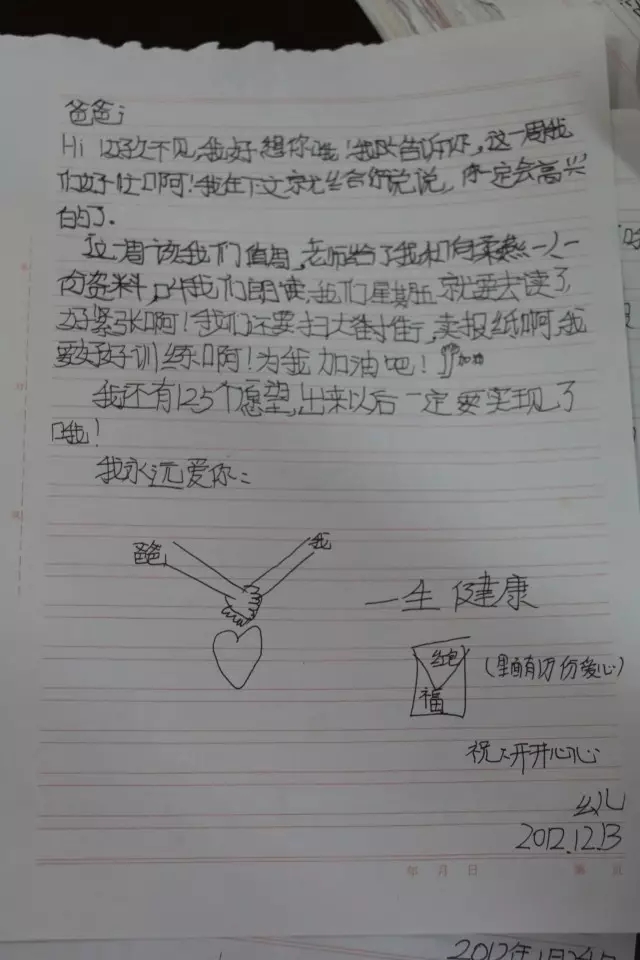 爸爸;
Hi 好久不见,我好想你哦!我告诉你,这一周我
们好忙啊!我在下文就给你说说,你一定会高兴
的了.
这周该我们值周,老师给了我和一人一
份资料,叫我们朗读,我们星期五就要去读了,
好紧张啊!我们还要扫大街,卖报纸啊,我
要好好训练啊!为我加油吧!加油
我还有125个愿望,出来以后一定要实现了
哦!
我永远爱你:
爸爸 我
一生健康
红包
福
(里面有1万份爱心)
祝:开开心心
幺儿
2012.12.13
年 月 日 第 页
2012年